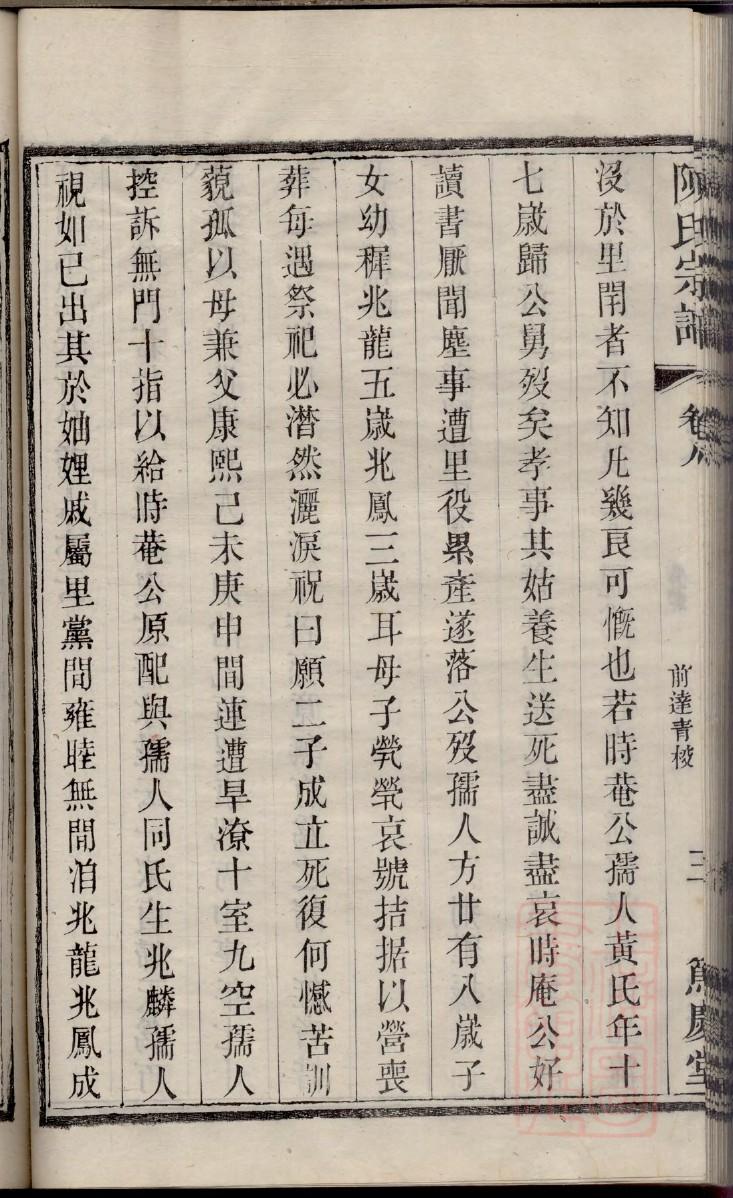 陳氏宗譜
卷八
前達青棱
三
篤慶堂
沒於里閈者不知凡幾良可慨也若時菴公孺人黃氏年十
七歲歸公舅歿矣孝事其姑養生送死盡誠盡哀時庵公好
讀書厭聞塵事遭里役累產遂落公歿孺人方廿有八歲子
女幼穉兆龍五歲兆鳳三歲耳母子煢煢哀號拮据以營喪
葬每遇祭祀必潸然灑淚祝曰願二子成立死復何憾苦訓
藐孤以母兼父康熙己未庚申間連遭旱潦十室九空孺人
控訴無門十指以給時菴公原配與孺人同氏生兆麟孺人
視如已出其於妯娌戚屬里黨間雍睦無間洎兆龍兆鳳成